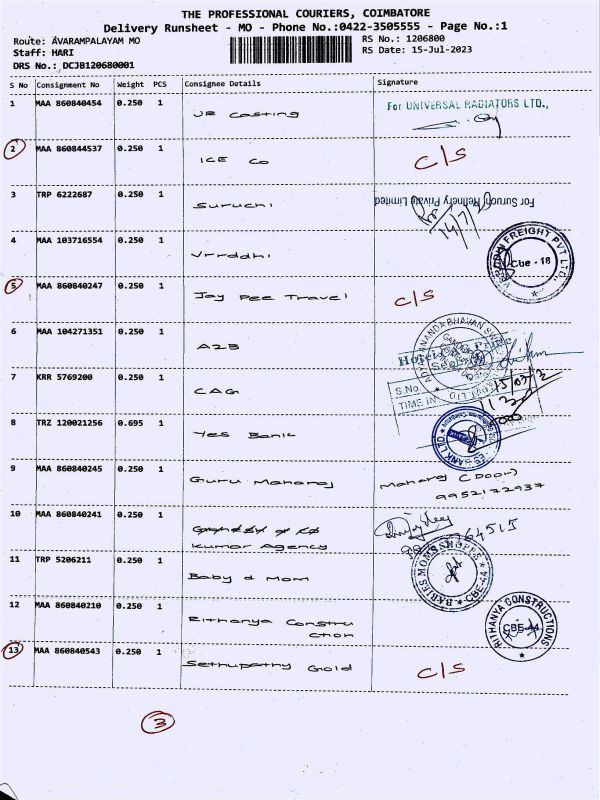 THE PROFESSIONAL COURIERS, COIMBATORE
Delivery Runsheet - MO - Phone No.:0422-3505555 - Page No.:1
Route: AVARAMPALAYAM MO RS No.: 1206800
Staff: HARI RS Date: 15-Jul-2023
DRS No.: DCJB120680001
S No Consignment No Weight PCS Consignee Details Signature
1 MAA 860840454 0.250 1 JR Casting For UNIVERSAL RADIATORS LTD.,
2 MAA 860844537 0.250 1 ICE Co C/S
3 TRP 6222687 0.250 1 Suruchi For Suruchi Refinery Private Limited
14/7/
4 MAA 103716554 0.250 1 Vrrddhi FREIGHT PVT LTD., Cbe - 18
5 MAA 860840247 0.250 1 Jay Pee Travel C/S
6 MAA 104271351 0.250 1 A2B
ANANDA BHAVAN
Hotel
S.No
TIME IN
7 KRR 5769200 0.250 1 CAG
8 TRZ 120021256 0.695 1 Yes Bank BANK LTD.
9 MAA 860840245 0.250 1 Guru Maharaj Maharaj (Door)
9952172937
10 MAA 860840241 0.250 1
Kumar Agency
11 TRP 5206211 0.250 1 Baby & Mom BABIES MOMS SHOPEE CBE-44
12 MAA 860840210 0.250 1 Rithanya Constru
ction RITHANYA CONSTRUCTIONS CBE-44
13 MAA 860840543 0.250 1 Sethupathy Gold C/S
3